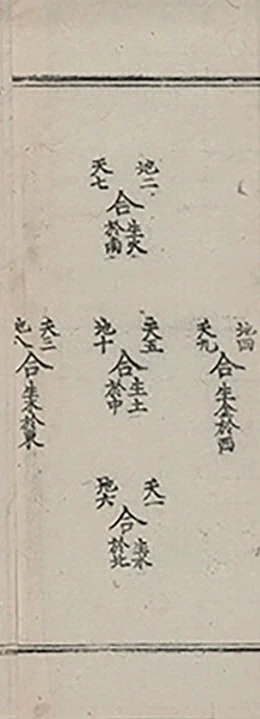 地二
天七
合
生火
於南
地四
天九
合
生金於西
天五
地十
合
生土
於中
天三
地八
合
生木於東
天一
地六
合
生水
於北